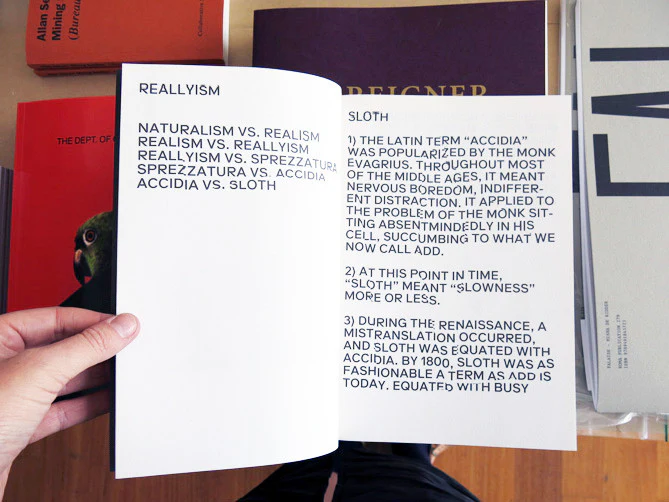 Allan Se
Mining
(Bureau
REIGNER
THE DEPT. OF
REALLYISM
NATURALISM VS. REALISM
REALISM VS. REALLYISM
REALLYISM VS. SPREZZATURA
SPREZZATURA VS. ACCIDIA
ACCIDIA VS. SLOTH
SLOTH
1) THE LATIN TERM “ACCIDIA”
WAS POPULARIZED BY THE MONK
EVAGRIUS. THROUGHOUT MOST
OF THE MIDDLE AGES, IT MEANT
NERVOUS BOREDOM, INDIFFER-
ENT DISTRACTION. IT APPLIED TO
THE PROBLEM OF THE MONK SIT-
TING ABSENTMINDEDLY IN HIS
CELL, SUCCUMBING TO WHAT WE
NOW CALL ADD.
2) AT THIS POINT IN TIME,
“SLOTH” MEANT “SLOWNESS”
MORE OR LESS.
3) DURING THE RENAISSANCE, A
MISTRANSLATION OCCURRED,
AND SLOTH WAS EQUATED WITH
ACCIDIA. BY 1800, SLOTH WAS AS
FASHIONABLE A TERM AS ADD IS
TODAY. EQUATED WITH BUSY